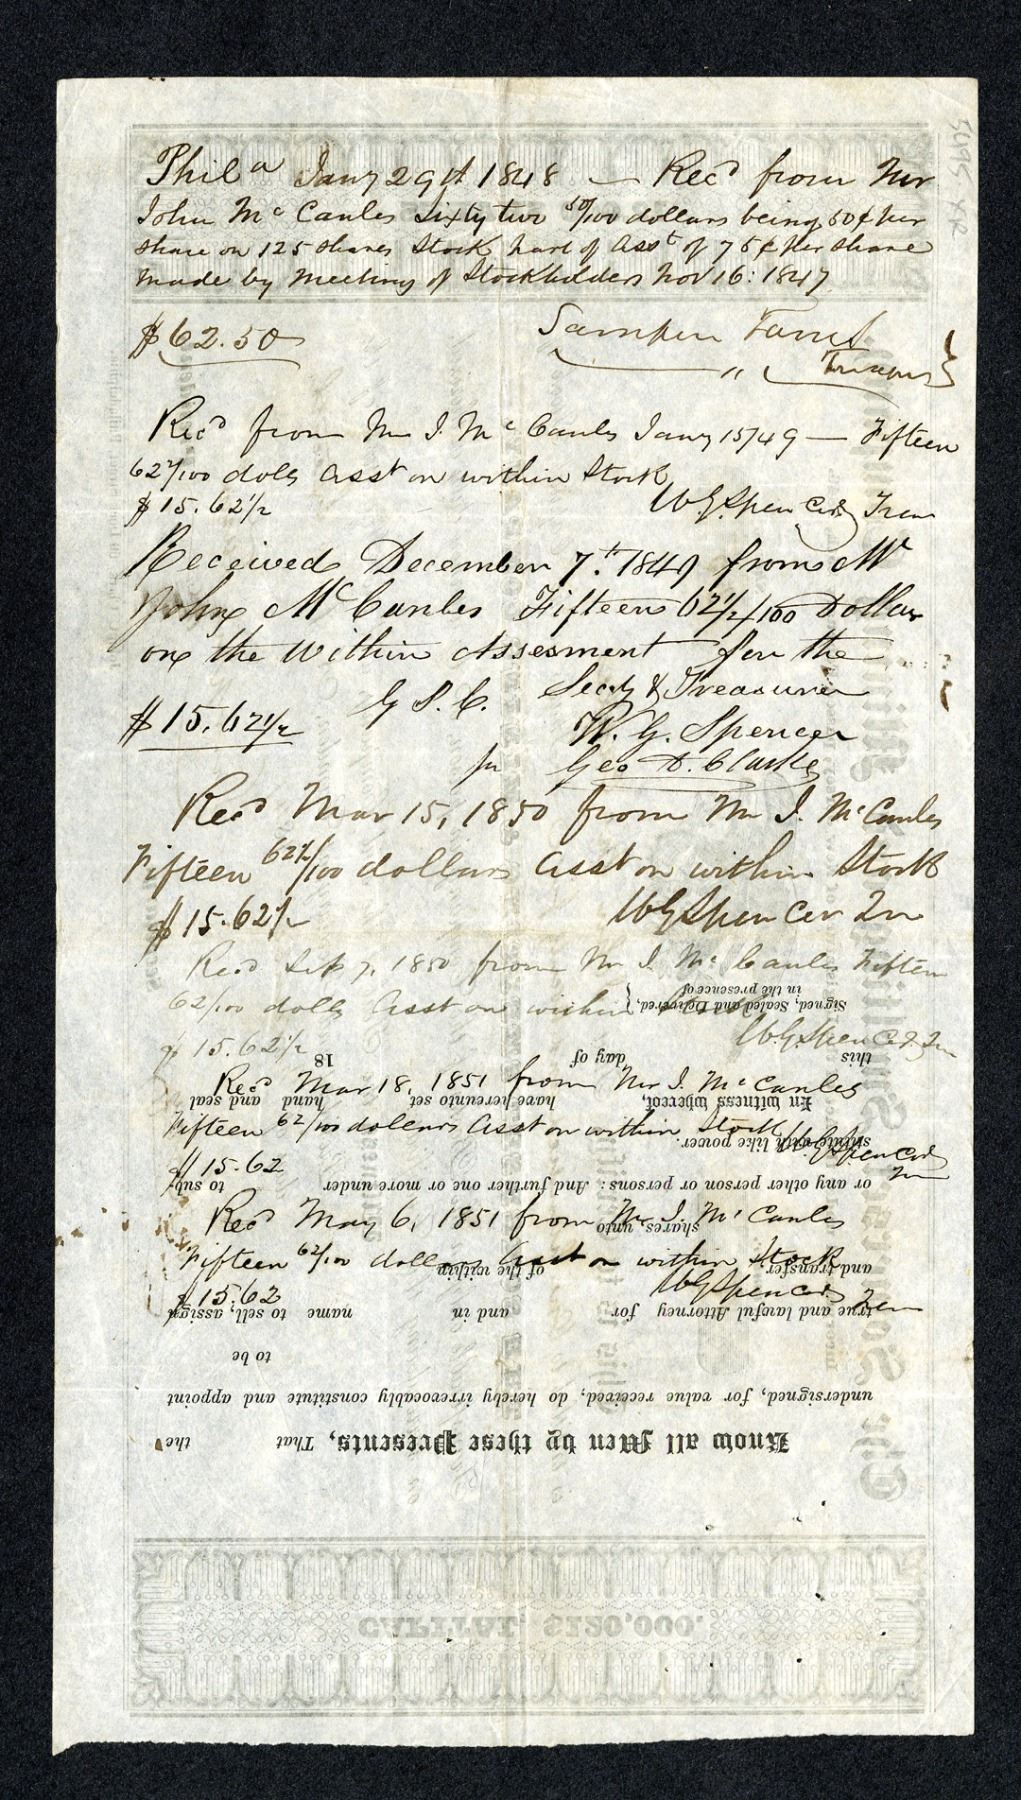 Phila Jany 29th 1848 — Recd from Mr
John McCanles Sixty two 50/100 dollars being 50¢ per
share on 125 shares Stock part of Asst of 75¢ per share
made by meeting of Stockholders Nov 16: 1847
$62.50
Recd from Mr J. McCanles Jany 15/49 — Fifteen
62½/100 dolls Asst on within Stock
$15.62½ WG Spencer Trea
Received December 7th 1849 from Mr
John McCanles Fifteen 62½/100 Dollars
on the Within Assesment for the
G S. C. Secty & Treasurer
$15.62½ W. G. Spencer
pr Geo D. Clarke
Recd Mar 15, 1850 from Mr J. McCanles
Fifteen 62½/100 dollars Asst on within Stock
$15.62½ WG Spencer Tre
Recd Sep 7, 1850 from Mr J. McCanles Fifteen
62/100 dolls Asst on within Stock
$15.62½ WG Spencer Tre
Recd Mar 18, 1851 from Mr J. McCanles
Fifteen 62/100 dollars Asst on within Stock
$15.62 WG Spencer
Tre
Recd May 6, 1851 from Mr J. McCanles
Fifteen 62/100 dollars Asst on within Stock
$15.62 WG Spencer Trea
Know all Men by these Presents, That the
undersigned, for value received, do hereby irrevocably constitute and appoint
to be
true and lawful Attorney for and in name to sell, assign
and transfer of the within
shares, unto
or any other person or persons: And further one or more under to sub-
stitute with like power.
In witness whereof, have hereunto set hand and seal
this day of 18
Signed, Sealed and Delivered,
in the presence of
CAPITAL $120,000.